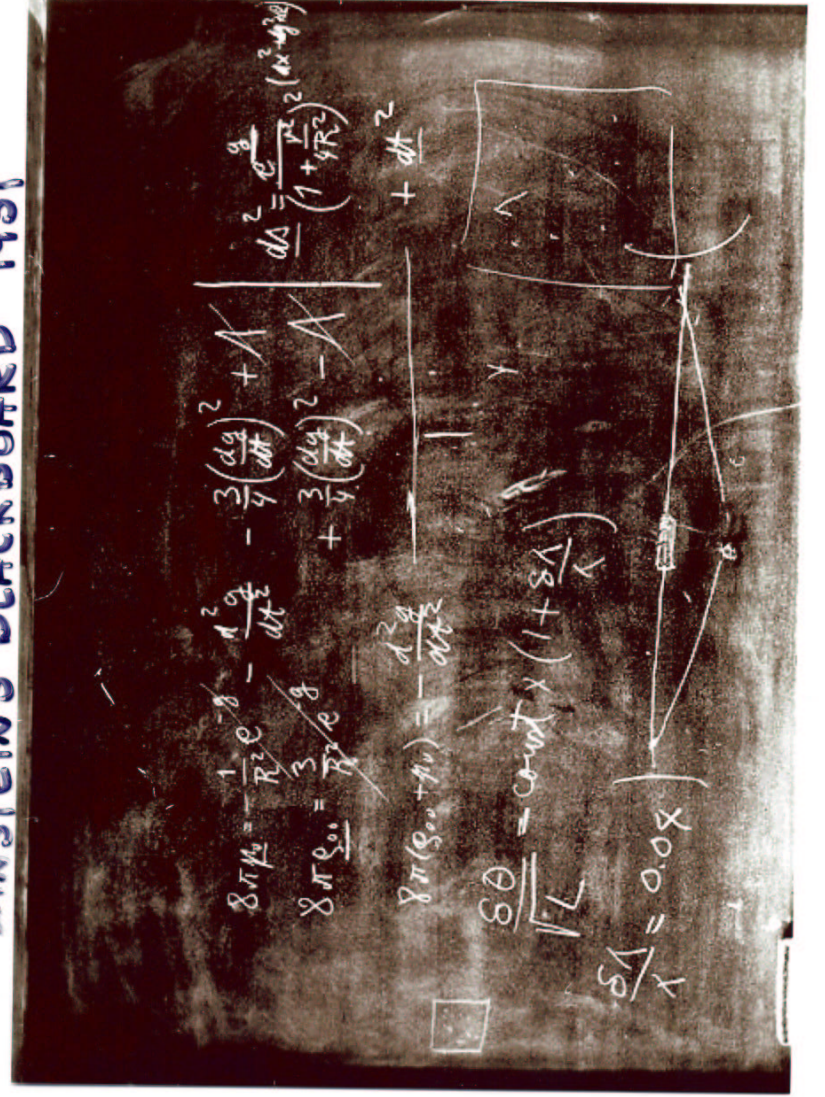 EINSTEIN'S BLACKBOARD 1931
8πp₀ = -1/R² e^-g - d²g/dt² - 3/4 (dg/dt)² + Λ
8πρ₀₀ = 3/R² e^-g + 3/4 (dg/dt)² - Λ
ds² = e^g/(1 + r²/4R²)²
+ dt²
8π(ρ₀₀ + p₀) = - d²g/dt²
δθ/√L = const × (1 + δλ/λ)
δλ/λ = 0.08